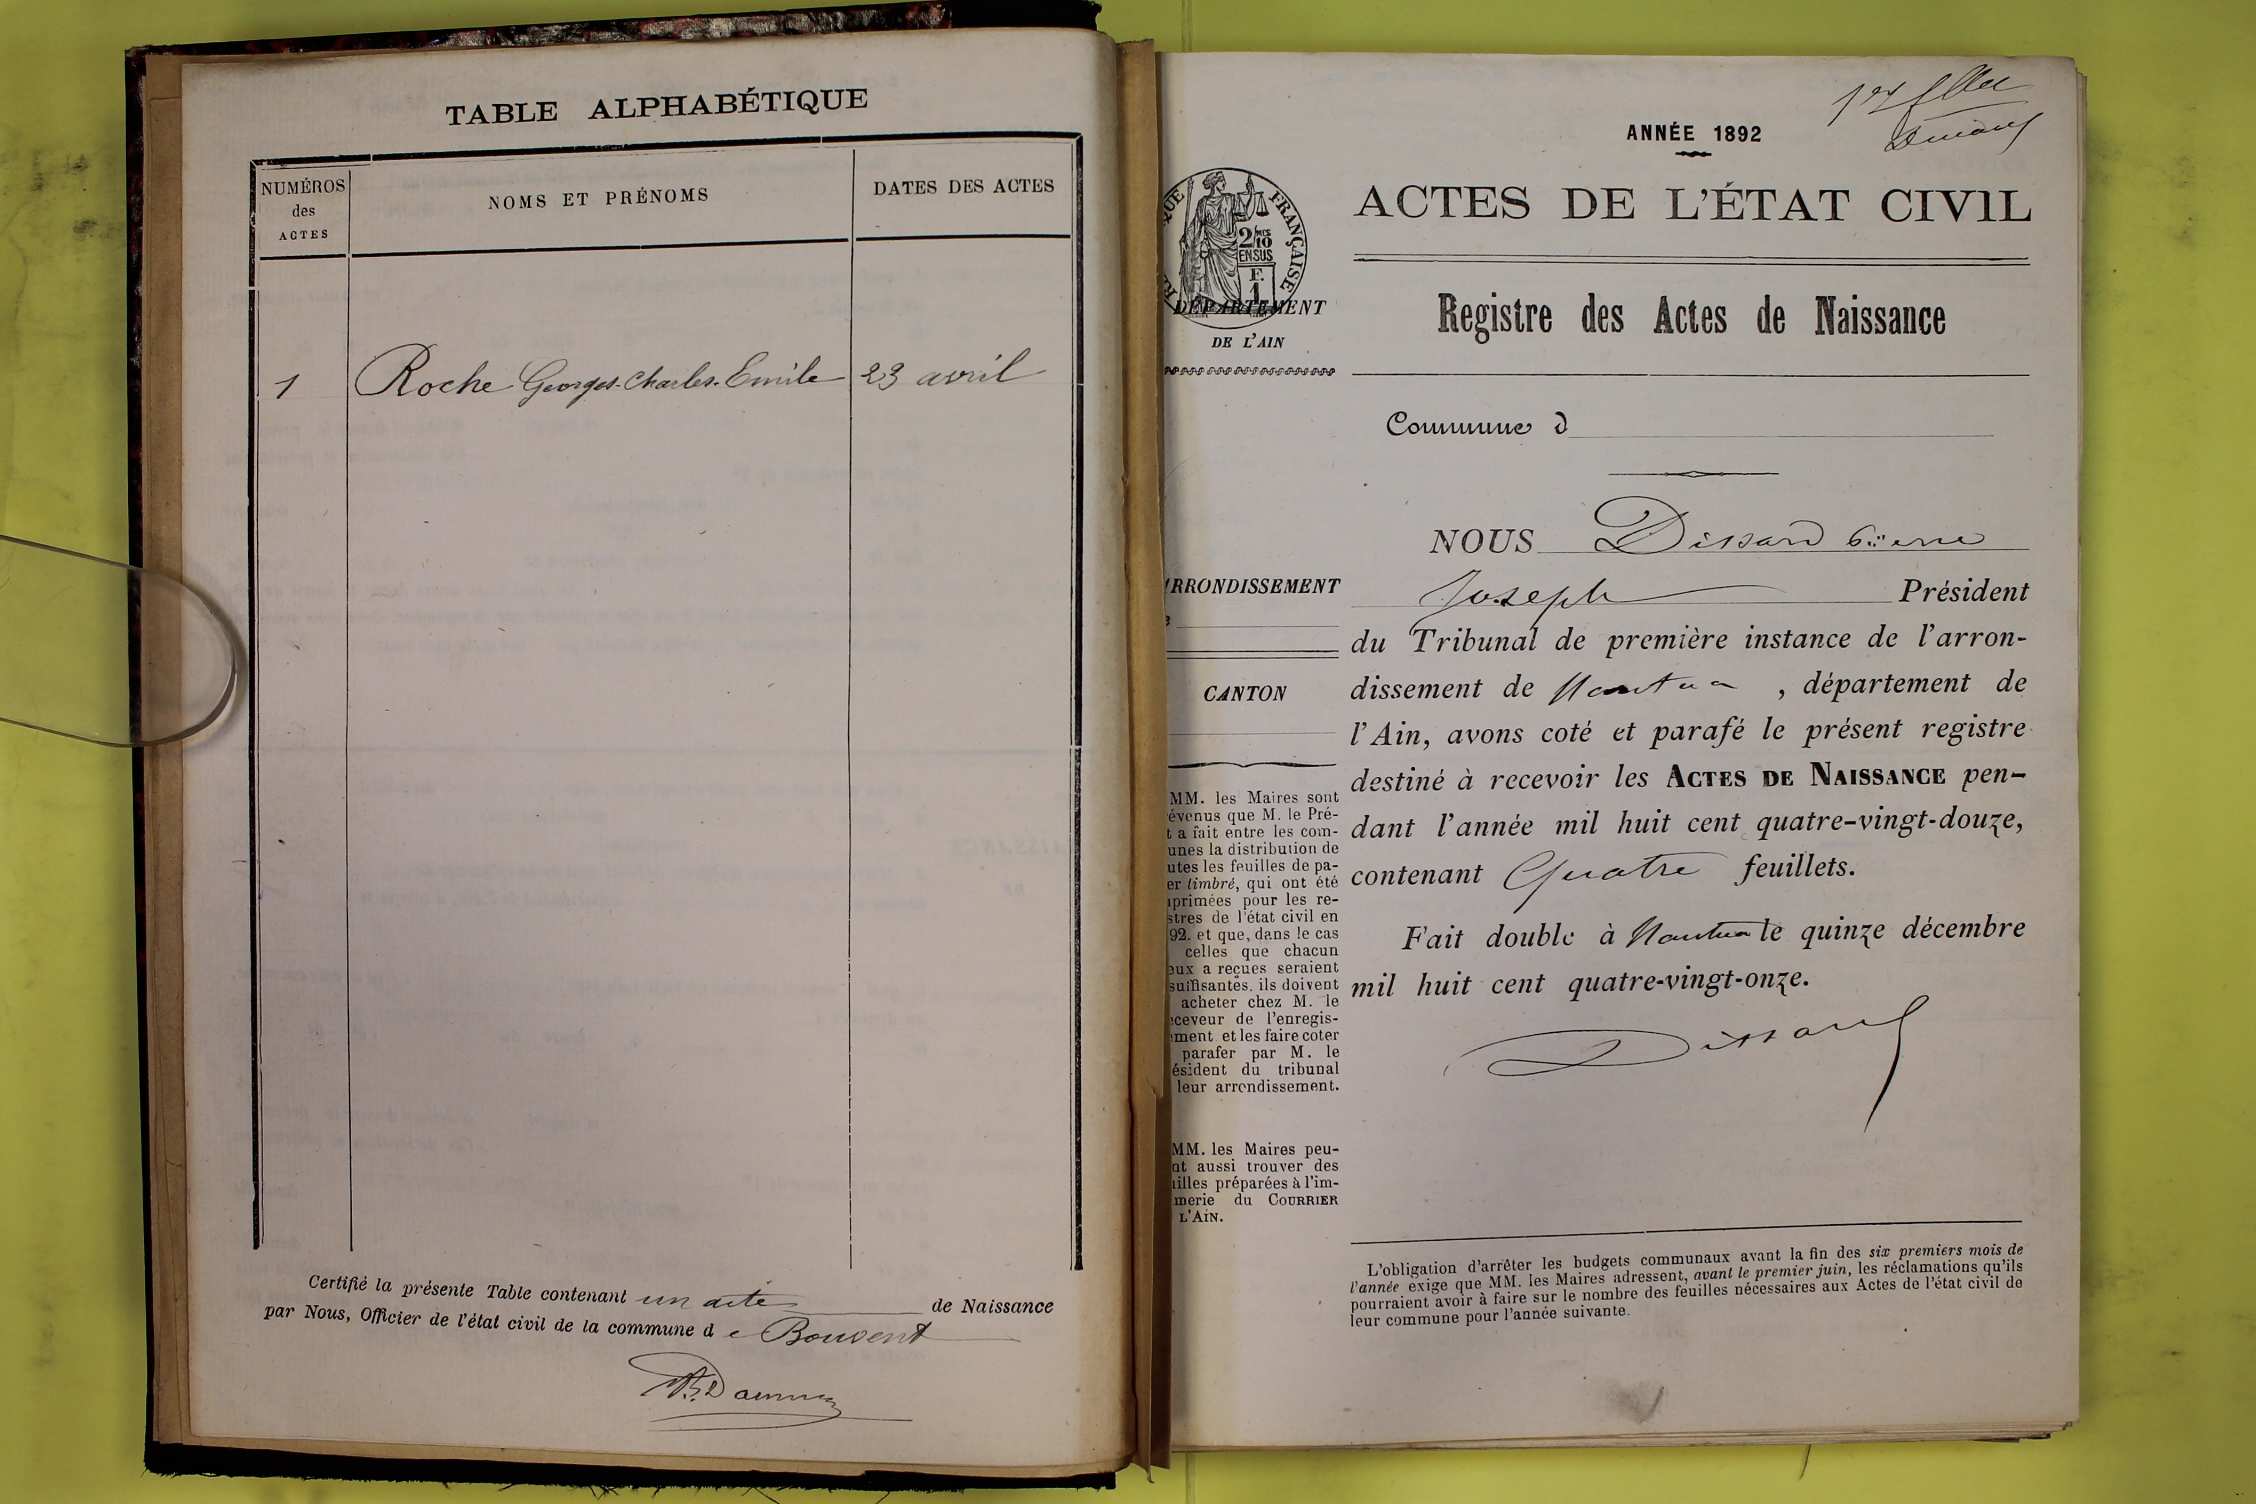 TABLE ALPHABÉTIQUE
NUMÉROS
des
ACTES
NOMS ET PRÉNOMS
DATES DES ACTES
1
Roche Georges-Charles-Emile
23 avril
Certifié la présente Table contenant un acte de Naissance
par Nous, Officier de l'état civil de la commune d e Bouvent
ANNÉE 1892
ACTES DE L'ÉTAT CIVIL
Registre des Actes de Naissance
FRANÇAISE
2/10
EN SUS
F.
1
DÉPARTEMENT
DE L'AIN
Commune d
NOUS Dissard
Joseph Président
du Tribunal de première instance de l'arron-
dissement de Nantua, département de
l'Ain, avons coté et parafé le présent registre
destiné à recevoir les ACTES DE NAISSANCE pen-
dant l'année mil huit cent quatre-vingt-douze,
contenant Quatre feuillets.
Fait double à Nantua le quinze décembre
mil huit cent quatre-vingt-onze.
Dissard
RRONDISSEMENT
CANTON
MM. les Maires sont
évenus que M. le Pré-
t a fait entre les com-
unes la distribution de
utes les feuilles de pa-
er timbré, qui ont été
primées pour les re-
stres de l'état civil en
92. et que, dans le cas
celles que chacun
eux a reçues seraient
suffisantes, ils doivent
acheter chez M. le
ceveur de l'enregis-
ment et les faire coter
parafer par M. le
ésident du tribunal
leur arrondissement.
MM. les Maires peu-
nt aussi trouver des
illes préparées à l'im-
merie du COURRIER
L'AIN.
L'obligation d'arrêter les budgets communaux avant la fin des six premiers mois de
l'année exige que MM. les Maires adressent, avant le premier juin, les réclamations qu'ils
pourraient avoir à faire sur le nombre des feuilles nécessaires aux Actes de l'état civil de
leur commune pour l'année suivante.